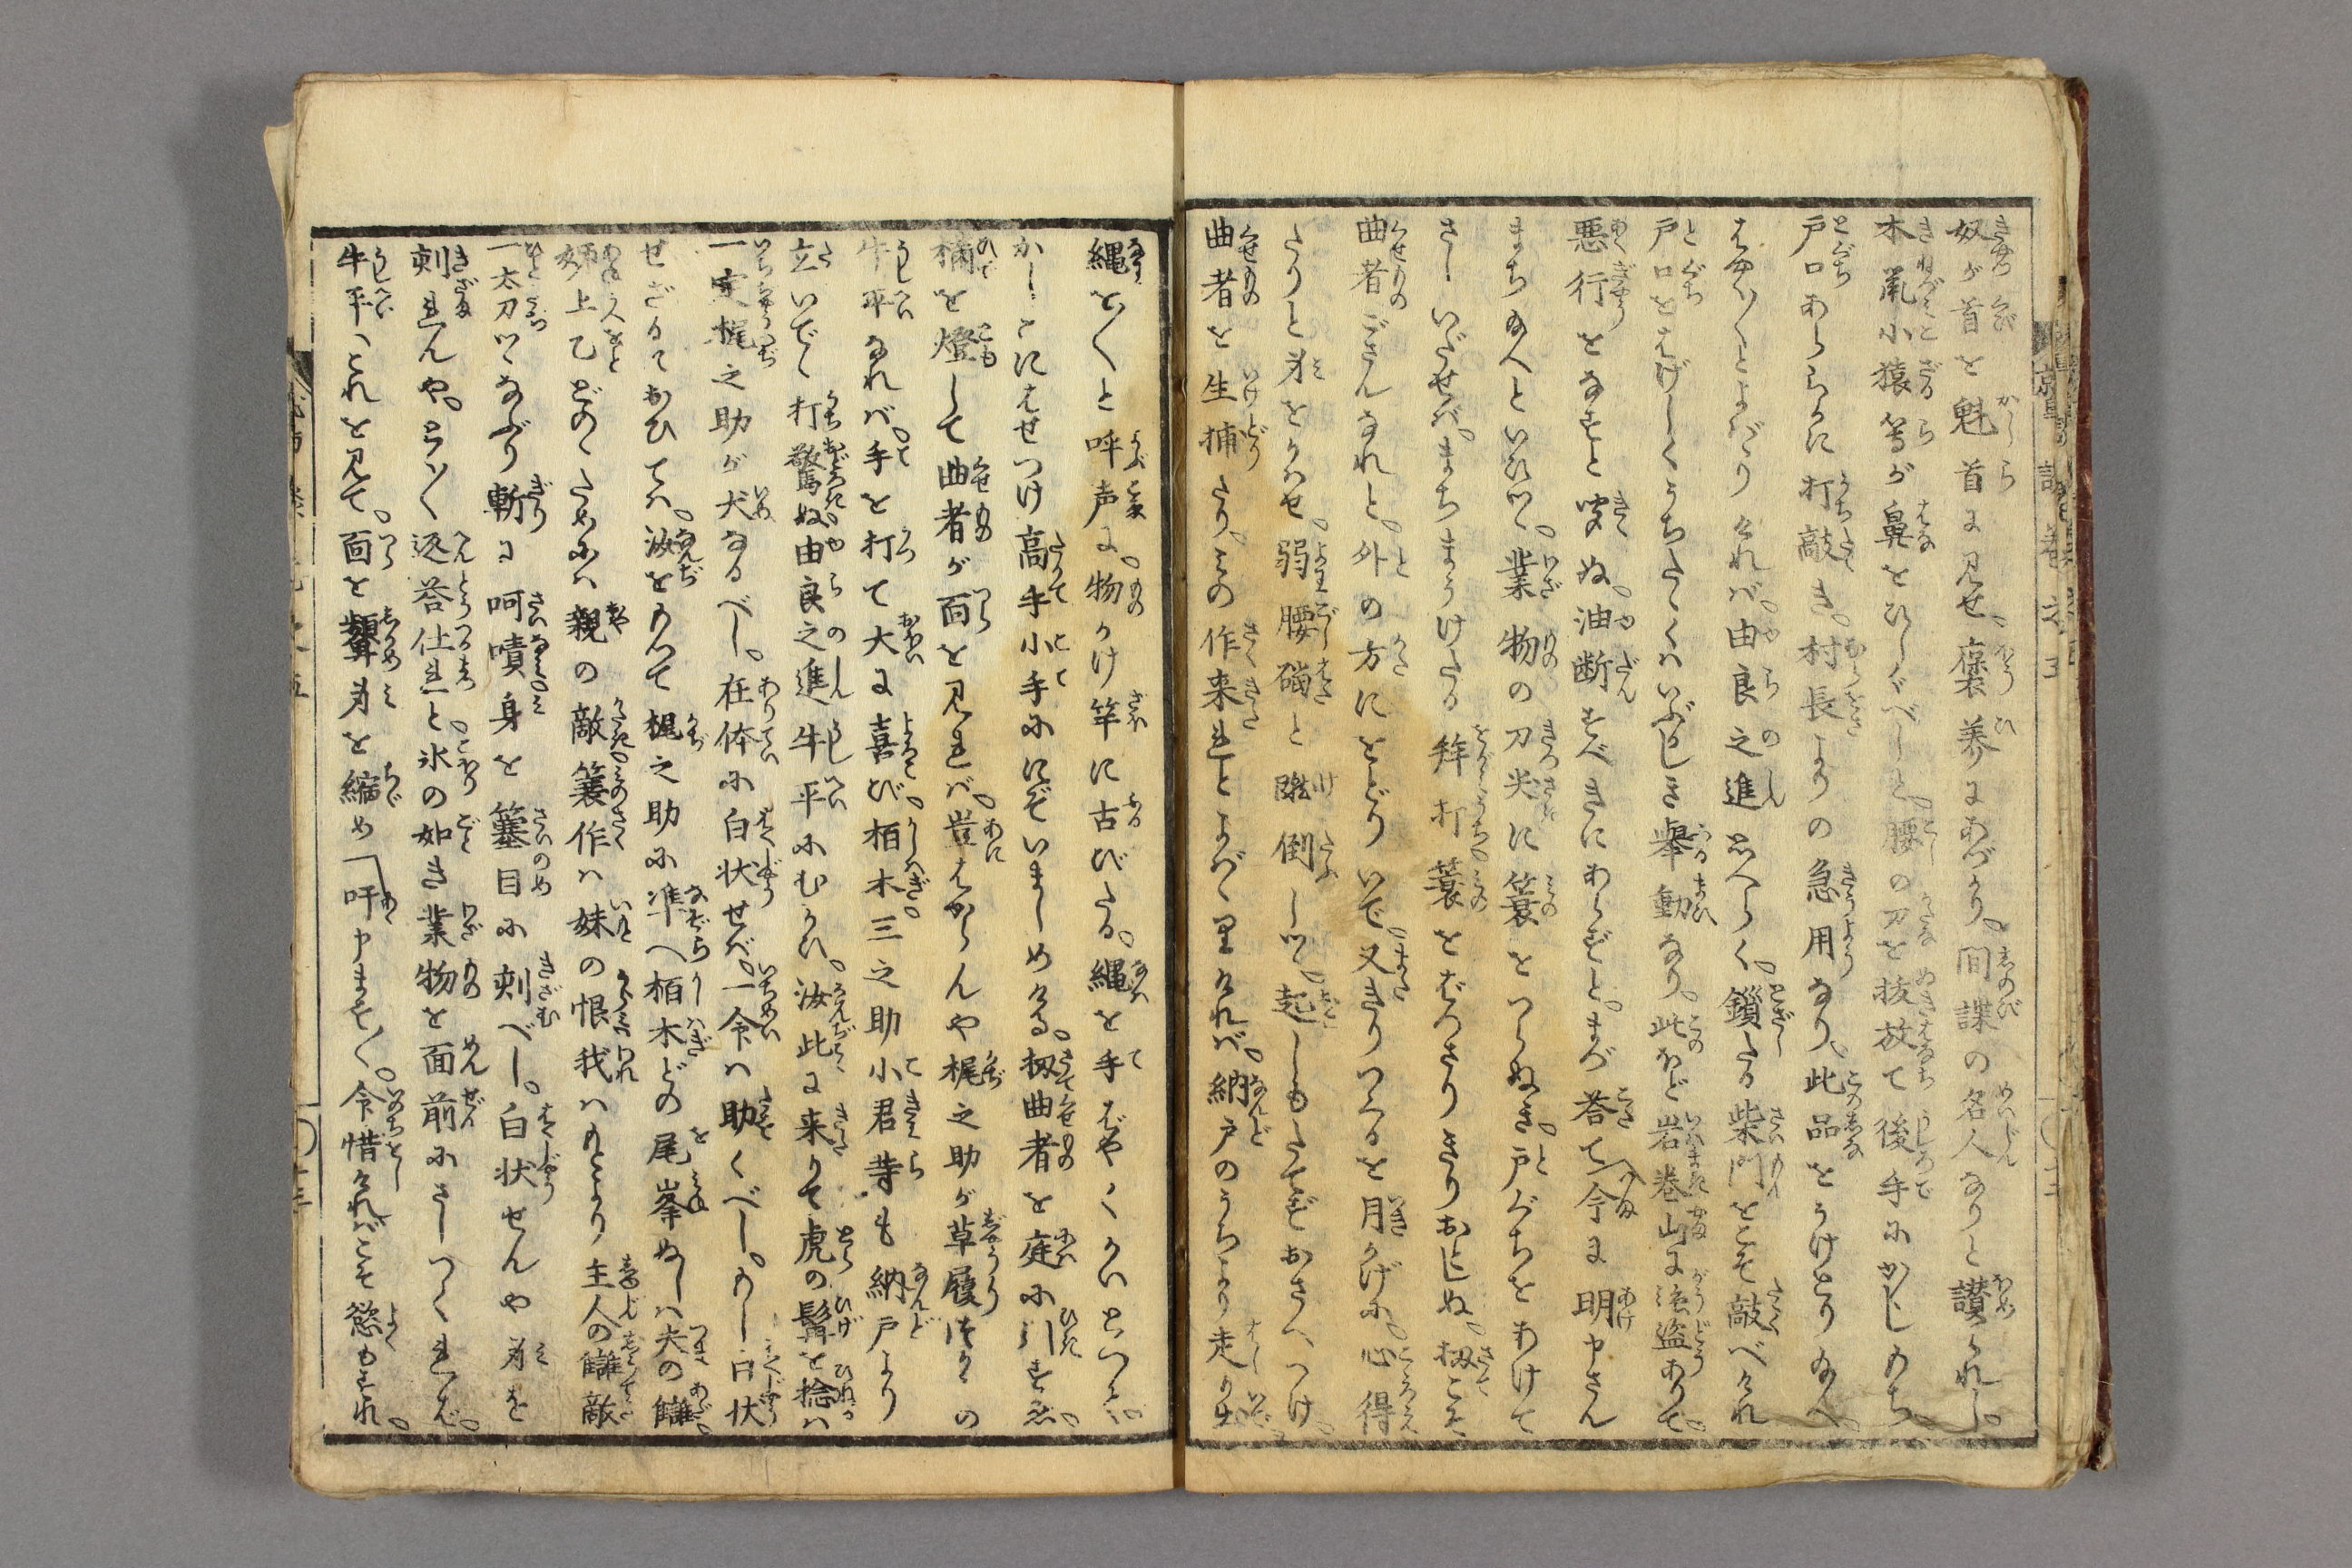 奴が首を魁首に見せ。褒美にあづかり。間諜の名人なりと讃られし。
木鼠小猿等が鼻をひしぐべしと。腰の刀を抜放て後手にかくしもち。
戸口あららかに打敲き。村長よりの急用なり。此品をうけとり給へ。
とよばゝりければ。由良之進思へらく。鎖たる柴門をこそ敲べけれ
戸口をはげしくうちたゝくはいぶかしき挙動なり。此ほど岩巻山に強盗ありて。
悪行をなすと聞ぬ。油断すべきにあらずと。まづ答て今に明申さん
まち給へといひつゝ。業物の刀尖に簔をつらぬき。戸ぐちをあけて
さしいだせば。まちまうけたる 打簔をばつさりきりおとしぬ。扨こそ
曲者ござんなれと。外の方にをどりいで。又きりつくるを月かげに。心得
たりと身をかはせ。弱腰礑と蹴倒しつゝ。起しもたてずおさへつけ。
曲者を生捕たり。みの作来れとよべば。納戸のうちより走り出
縄とく〳〵と呼声に。物かけ竿に古びたる。縄を手ばやくかいとつて
かしこにはせつけ高手小手にいましめける。扨曲者を庭に引すゑ。
燭を燈して曲者が面を見れば。豈はからんや梶之助が草履つかみの
牛平なれば。手を打て大に喜び。栢木三之助小君等も納戸より
立いでゝ打驚ぬ。由良之進牛平にむかひ。汝此に来りて虎の髯を捻は
一定梶之助が犬なるべし。在体に白状せば。一命は助くべし。もし白状
せざるにおひては。汝をもつて梶之助に准へ栢木どの尾峯ぬしは夫の讎。
姉上乙どのゝためには親の敵。簑作は妹の恨我はもとより主人の讎敵
一太刀づゝなぶり斬に呵嘖身を簺目に刻べし。白状せんや身を
刻れんや。とくとく返答仕れと氷の如き業物を面前にさしつくれば。
牛平はこれを見て。面を顰身を縮め「吁申ます〳〵。命惜ければこそ慾もすれ。